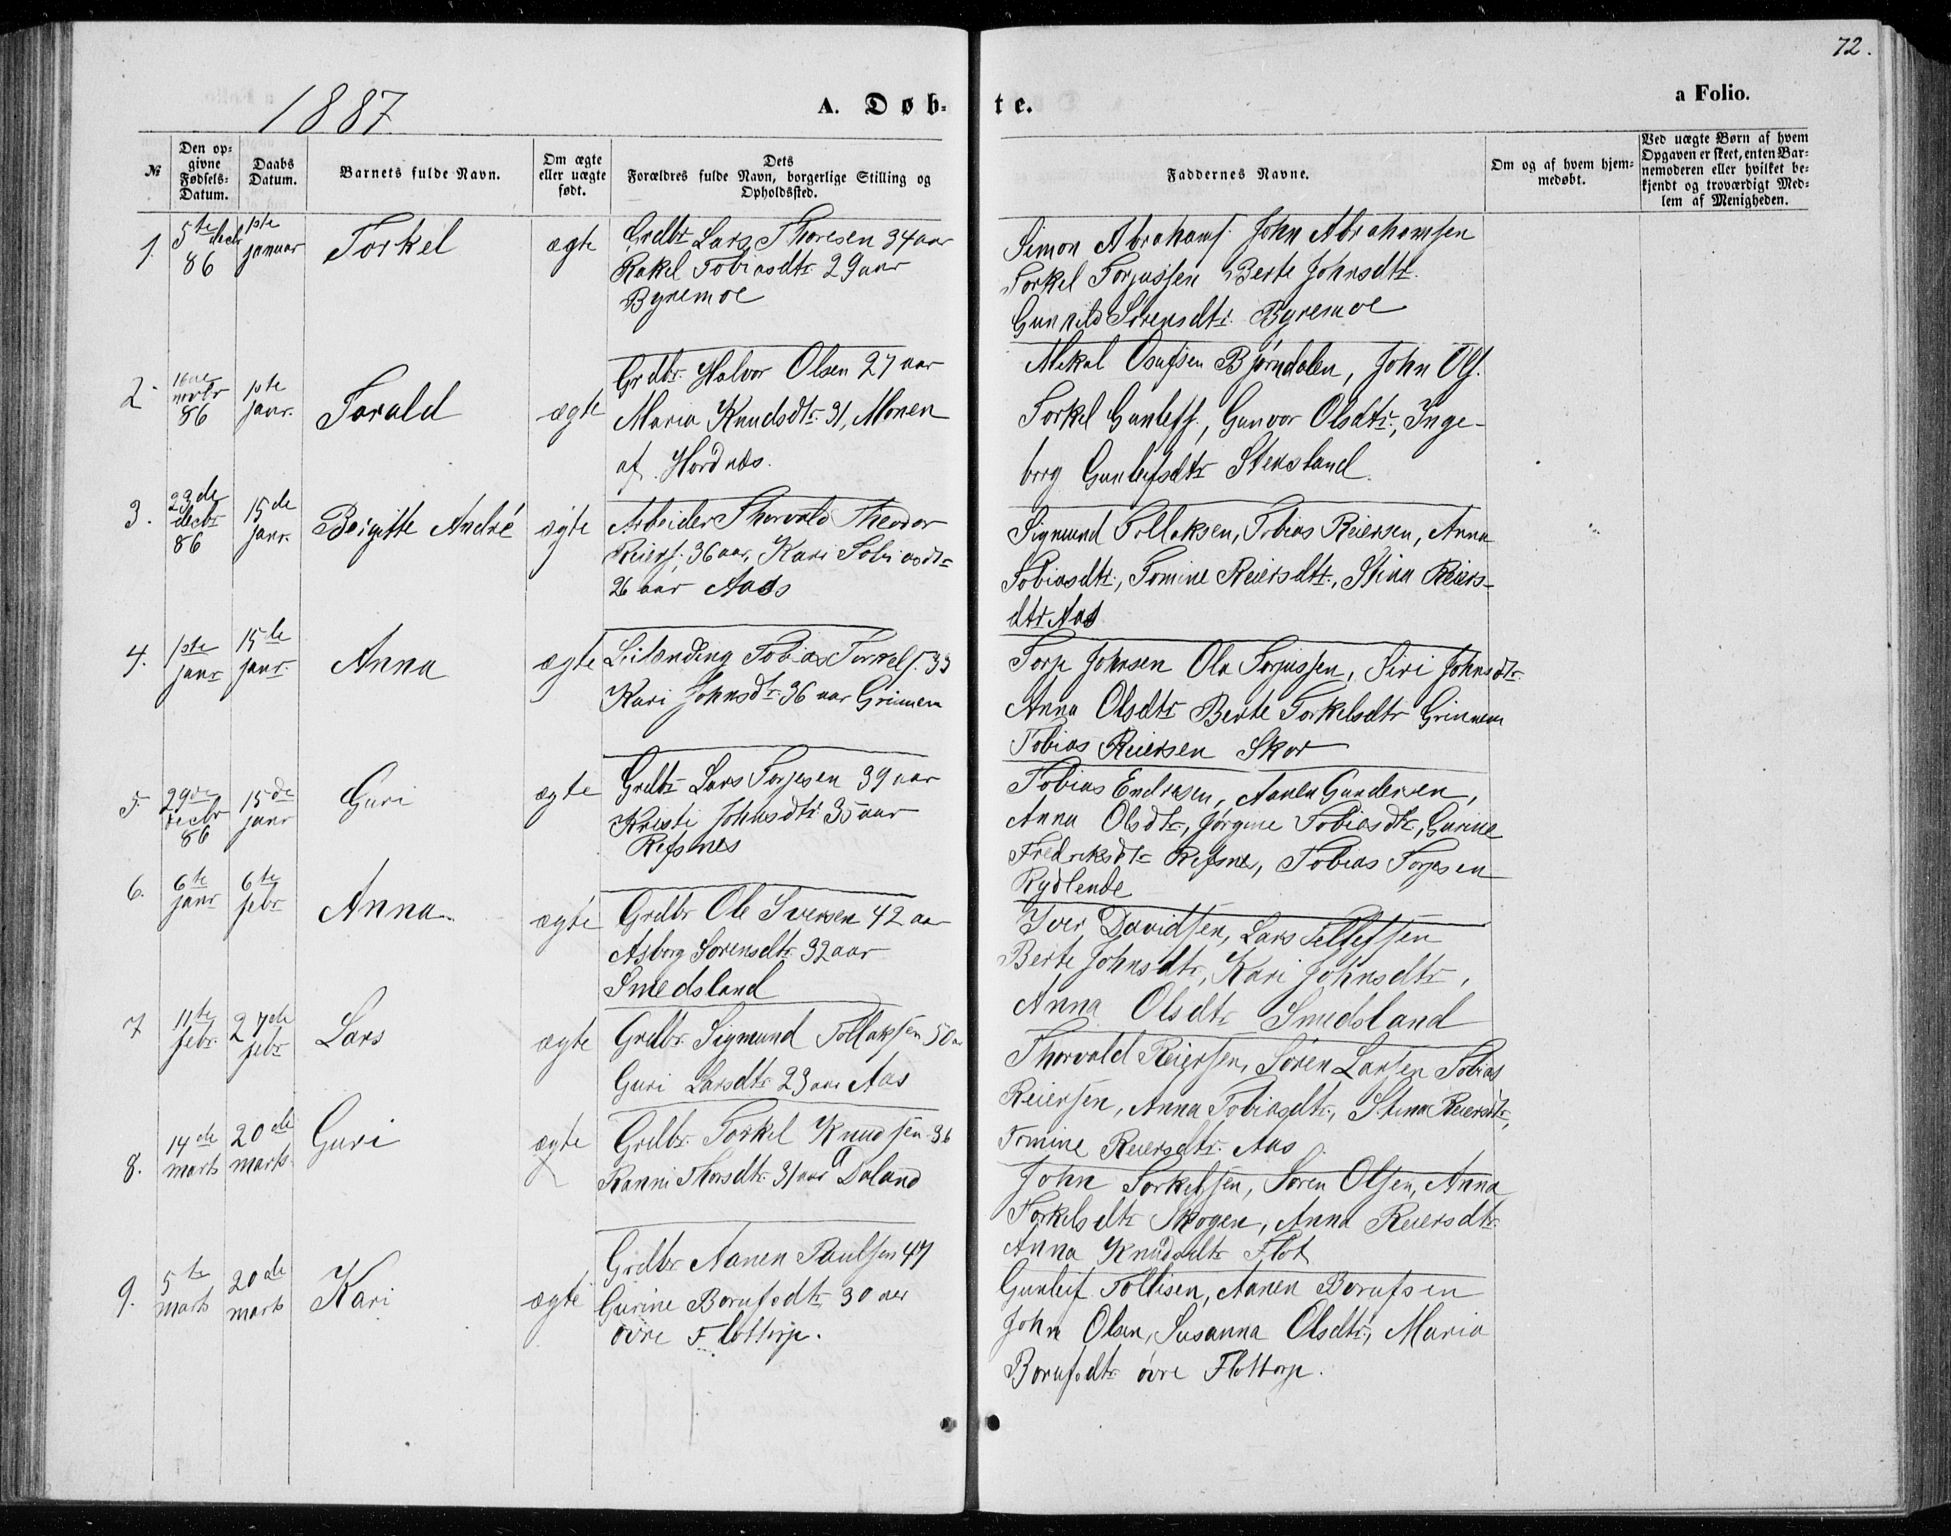 72.
1887
A. Døb-
te.
a Folio.
№
Den op-
givne
Fødsels-
Datum.
Daabs
Datum.
Barnets fulde Navn.
Om ægte
eller uægte
født.
Dets
Forældres fulde Navn, borgerlige Stilling og
Opholdssted.
Faddernes Navne.
Om og af hvem hjem-
medøbt.
Ved uægte Børn af hvem
Opgaven er skeet, enten Bar-
nemoderen eller hvilket be-
kjendt og troværdigt Med-
lem af Menigheden.
1.
5te decbr 86
1ste januar
Torkel
ægte
Grdbr Lars Thoresen 34 aar
Rakel Tobiasdtr 29 aar
Byremoe
Simon Abrahams. John Abrahamsen
Torkel Torjussen Berte Johnsdtr.
Gunnild Sørensdtr. Byremoe
2.
16de novbr 86
1ste janr.
Torald
ægte
Grdbr. Halvor Olsen 27 aar
Maria Knudsdtr. 31, Monen
af Hordnæs.
Mikal Osufsen Bjørndalen, John Ols.
Torkel Gunlefs., Gunvor Olsdtr., Inge-
borg Gunleifsdtr Stensland
3.
23de decbr 86
15de janr.
Birgitte André
ægte
Arbeider Thorvald Theodor
Reiers. 36 aar, Kari Tobiasdtr
26 aar Aas
Sigmund Tollaksen, Tobias Reiersen, Anna
Tobiasdtr., Tomine Reiersdtr., Stina Reiers-
dtr Aas
4.
1ste janr
15de janr
Anna
ægte
Leilending Tobias Torkels. 33
Kari Johnsdtr 36 aar Grimmen
Torje Johnsen Ole Torjussen, Siri Johnsdtr.
Anna Olsdtr Berte Torkelsdtr Grimmen
Tobias Reiersen Skor
5
29de decbr 86
15de janr
Guri
ægte
Grdbr Lars Torjesen 39 aar
Kristi Johnsdtr 35 aar
Refsnes
Tobias Endresen, Aanen Gundersen,
Anna Olsdtr., Jørgine Tobiasdtr, Gurine
Fredriksdtr Refsnes, Tobias Torjesen
Rydlende
6.
6te janr
6te febr
Anna
ægte
Grdbr Ole Iversen 42 aar
Asborg Sørensdtr 32 aar
Smedsland
Iver Davidsen, Lars Tellefsen
Berte Johnsdtr, Kari Johnsdtr,
Anna Olsdtr Smedsland
7
11te febr.
27de febr
Lars
ægte
Grdbr. Sigmund Tollaksen 50 aar
Guri Larsdtr. 23 aar Aas
Thorvald Reiersen, Søren Larsen Tobias
Reiersen, Anna Tobiasdtr., Stina Reiersdtr.,
Tomine Reiersdtr. Aas
8.
14de marts
20de marts
Guri
ægte
Grdbr. Torkel Knudsen 36
Ranni Thorsdtr. 31 aar Daland
John Torkelsen, Søren Olsen, Anna
Torkelsdtr Skogen, Anna Reiersdtr
Anna Knudsdtr Flot
9.
5te marts
20de marts
Kari
ægte
Grdbr Aanen Paulsen 47
Gurine Borufsdtr 30 aar
øvre Flottorp.
Gunleif Tollisen, Aanen Borufsen
John Olsen, Susanna Olsdtr., Maria
Borufsdtr øvre Flottorp.